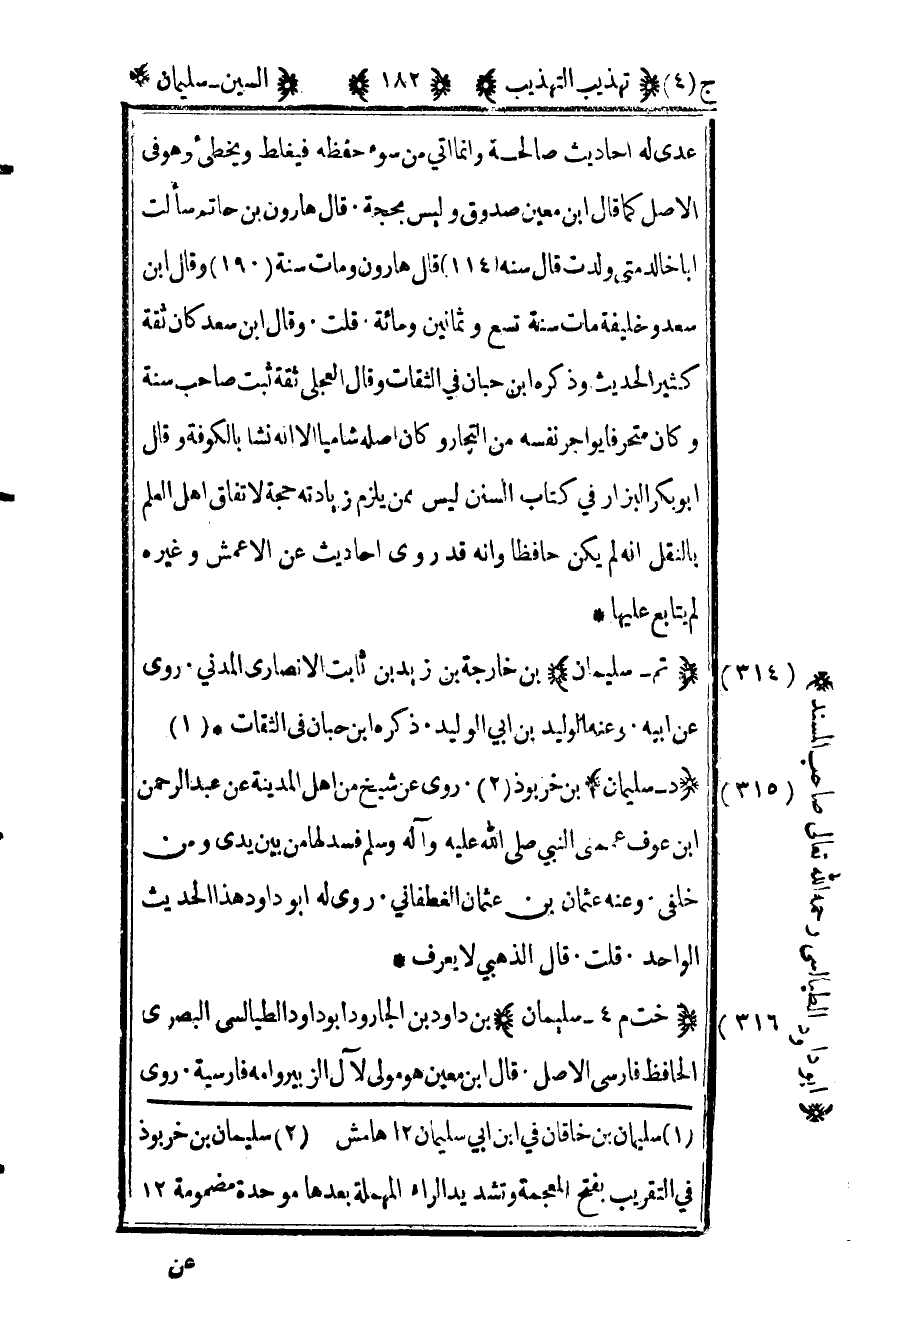 ج (٤) ﴿ تهذيب التهذيب ﴾ ﴿ ١٨٢ ﴾ ﴿ السين ـ سليمان ﴾
عدى له احاديث صالحة وانما اتي من سوء حفظه فيغلط ويخطئ وهو فى
الاصل كما قال ابن معين صدوق وليس بحجة · قال هارون بن حاتم سألت
ابا خالد متى ولدت قال سنه (١١٤) قال هارون ومات سنة (١٩٠) وقال ابن
سعد وخليفة مات سنة تسع وثمانين ومائة · قلت · وقال ابن سعد كان ثقة
كثير الحديث وذكره ابن حبان في الثقات وقال العجلى ثقة ثبت صاحب سنة
وكان متحرفا يواجر نفسه من التجار وكان اصله شاميا الا انه نشا بالكوفة وقال
ابو بكر البزار في كتاب السنن ليس ممن يلزم زيادته حجة لاتفاق اهل العلم
بالنقل انه لم يكن حافظا وانه قد روى احاديث عن الاعمش وغيره
لم يتابع عليها *
(٣١٤) ﴿ تم ـ سليمان ﴾ بن خارجة بن زيد بن ثابت الانصارى المدني · روى
عن ابيه · وعنه الوليد بن ابي الوليد · ذكره ابن حبان فى الثقات * (١)
(٣١٥) ﴿ د ـ سليمان ﴾ بن خربوذ (٢) · روى عن شيخ من اهل المدينة عن عبد الرحمن
ابن عوف عممنى النبي صلى الله عليه وآله وسلم فسدلها من بين يدى ومن
خلفى · وعنه عثمان بن عثمان الغطفاني · روى له ابو داود هذا الحديث
الواحد · قلت · قال الذهبي لا يعرف *
٣١٦) ﴿ خت م ٤ ـ سليمان ﴾ بن داود بن الجارود ابو داود الطيالسى البصرى
الحافظ فارسى الاصل · قال ابن معين هو مولى لآل الزبير وامه فارسية · روى
﴿ ابو داود الطيالسى رحمه الله تعالى صاحب المسند ﴾
(١) سليمان بن خاقان في ابن ابي سليمان ١٢ هامش (٢) سليمان بن خربوذ
في التقريب بفتح المعجمة وتشديد الراء المهملة بعدها موحدة مضمومة ١٢
عن